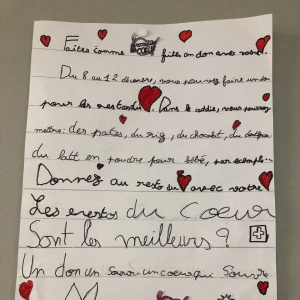 Faites comme fites on don avec votre
Du 8 au 12 décembre, vous pouvez faire un don
pour les restos. Dans le caddie, vous pouvez
mettre: des pates, du riz, du chocolat, du
du lait en poudre pour bébé, par exemple...
Donnez au resto du avec votre
Les du Coeur
Sont les meilleurs?
Un don un un coeur qui s'ouvre